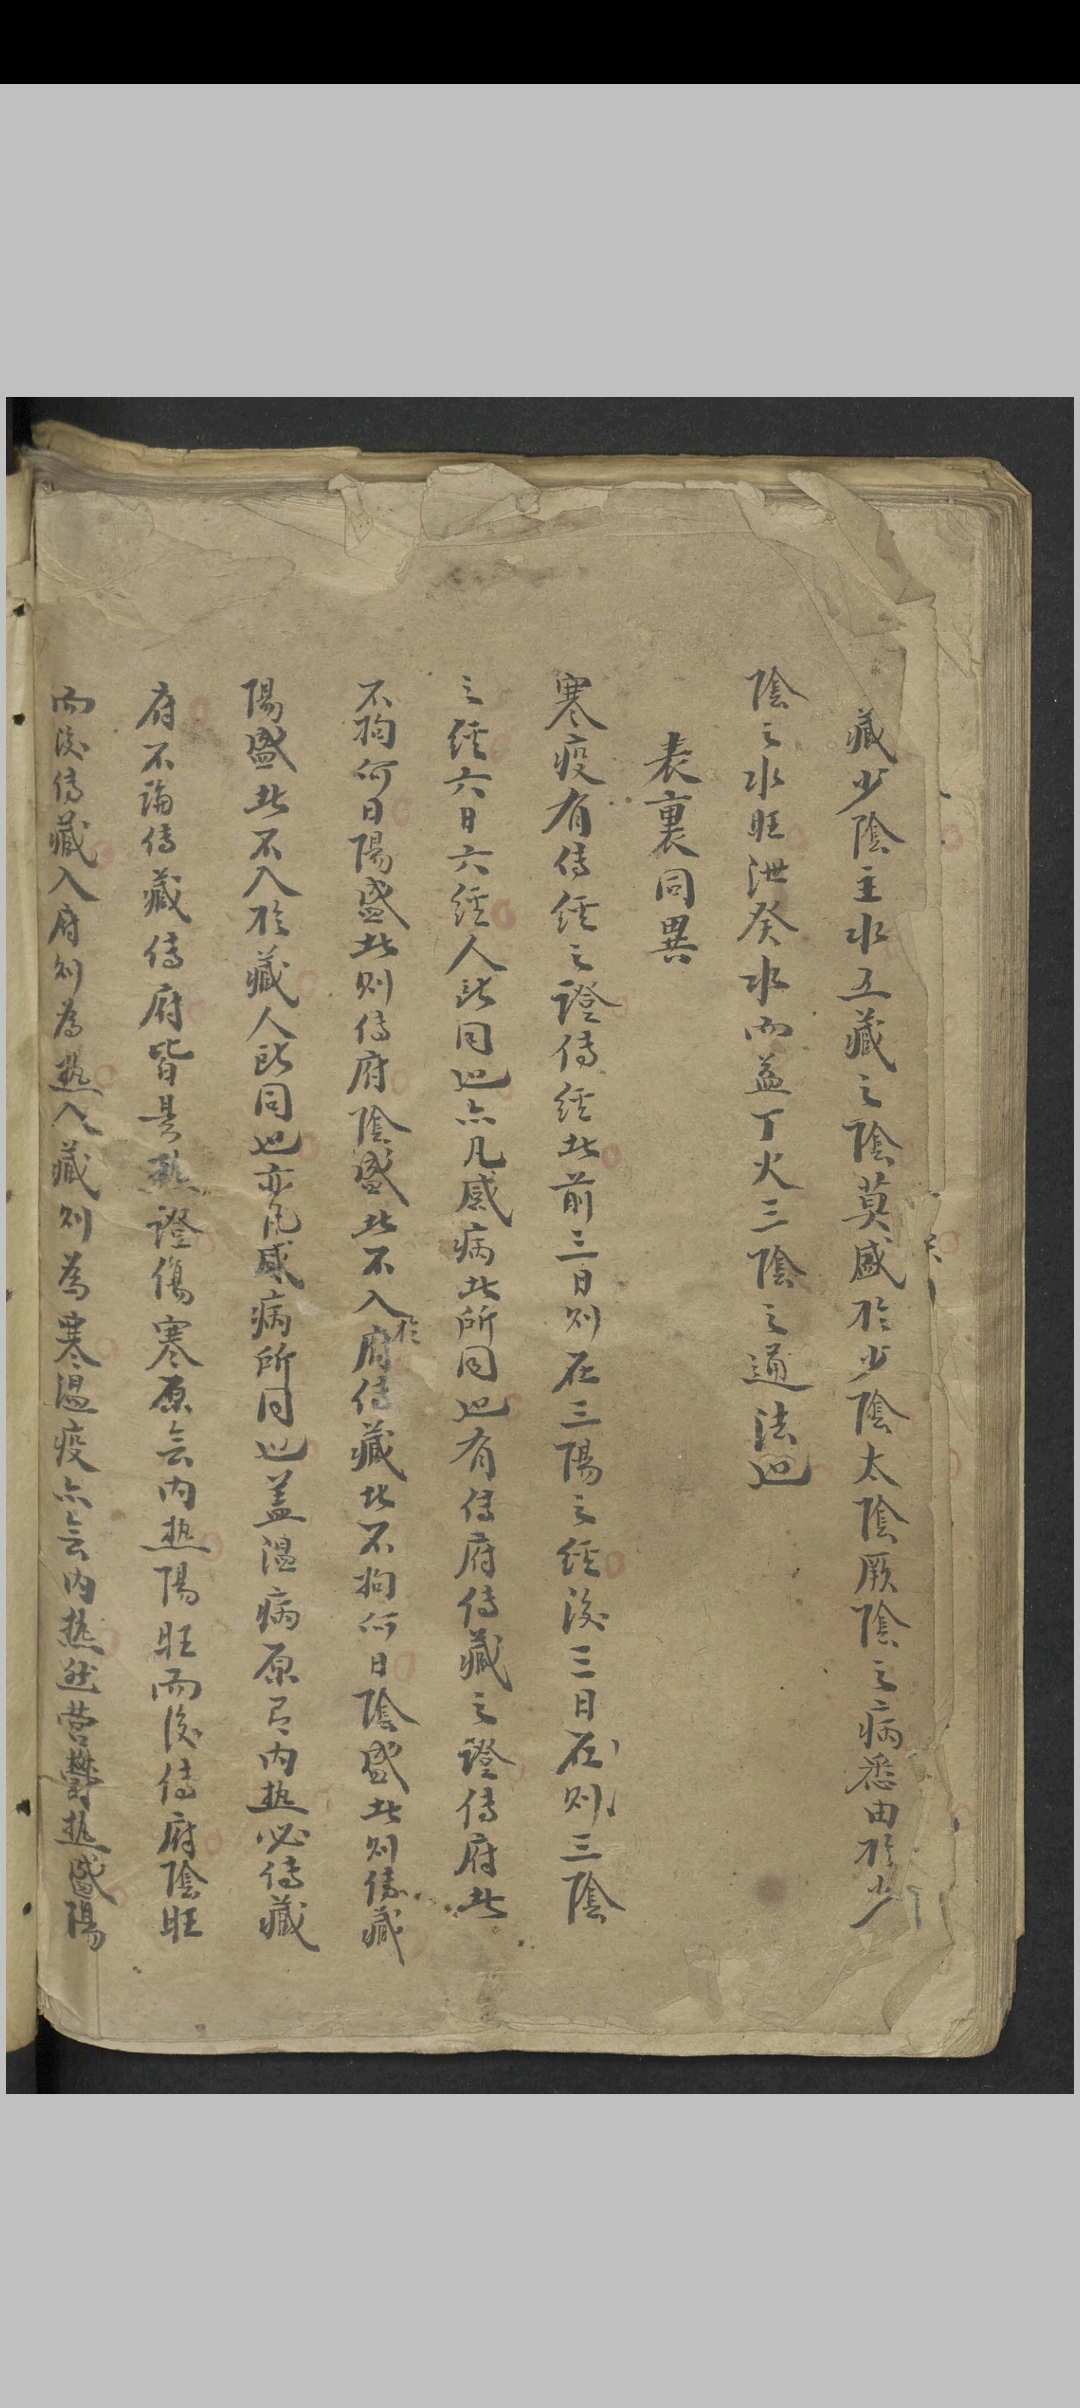 藏少陰主水五藏之陰莫盛於少陰太陰厥陰之病悉由於少
陰之水旺泄癸水而益丁火三陰之通法也
表裏同異
寒疫有傳經之證傳經此前三日則在三陽之經後三日在則三陰
之經六日六經人皆同也亦凡感病此所同也有傳府傳藏之證傳府此
不拘何日陽盛此則傳府陰盛此不入於府傳藏此不拘何日陰盛此則傳藏
陽盛此不入於藏人皆同也亦凡感病所同也蓋温病原有内热必傳藏
府不論傳藏傳府皆是热證傷寒原無内热陽旺而後傳府陰旺
而後傳藏入府則為热入藏則為寒温疫亦無内热然营鬱热盛陽